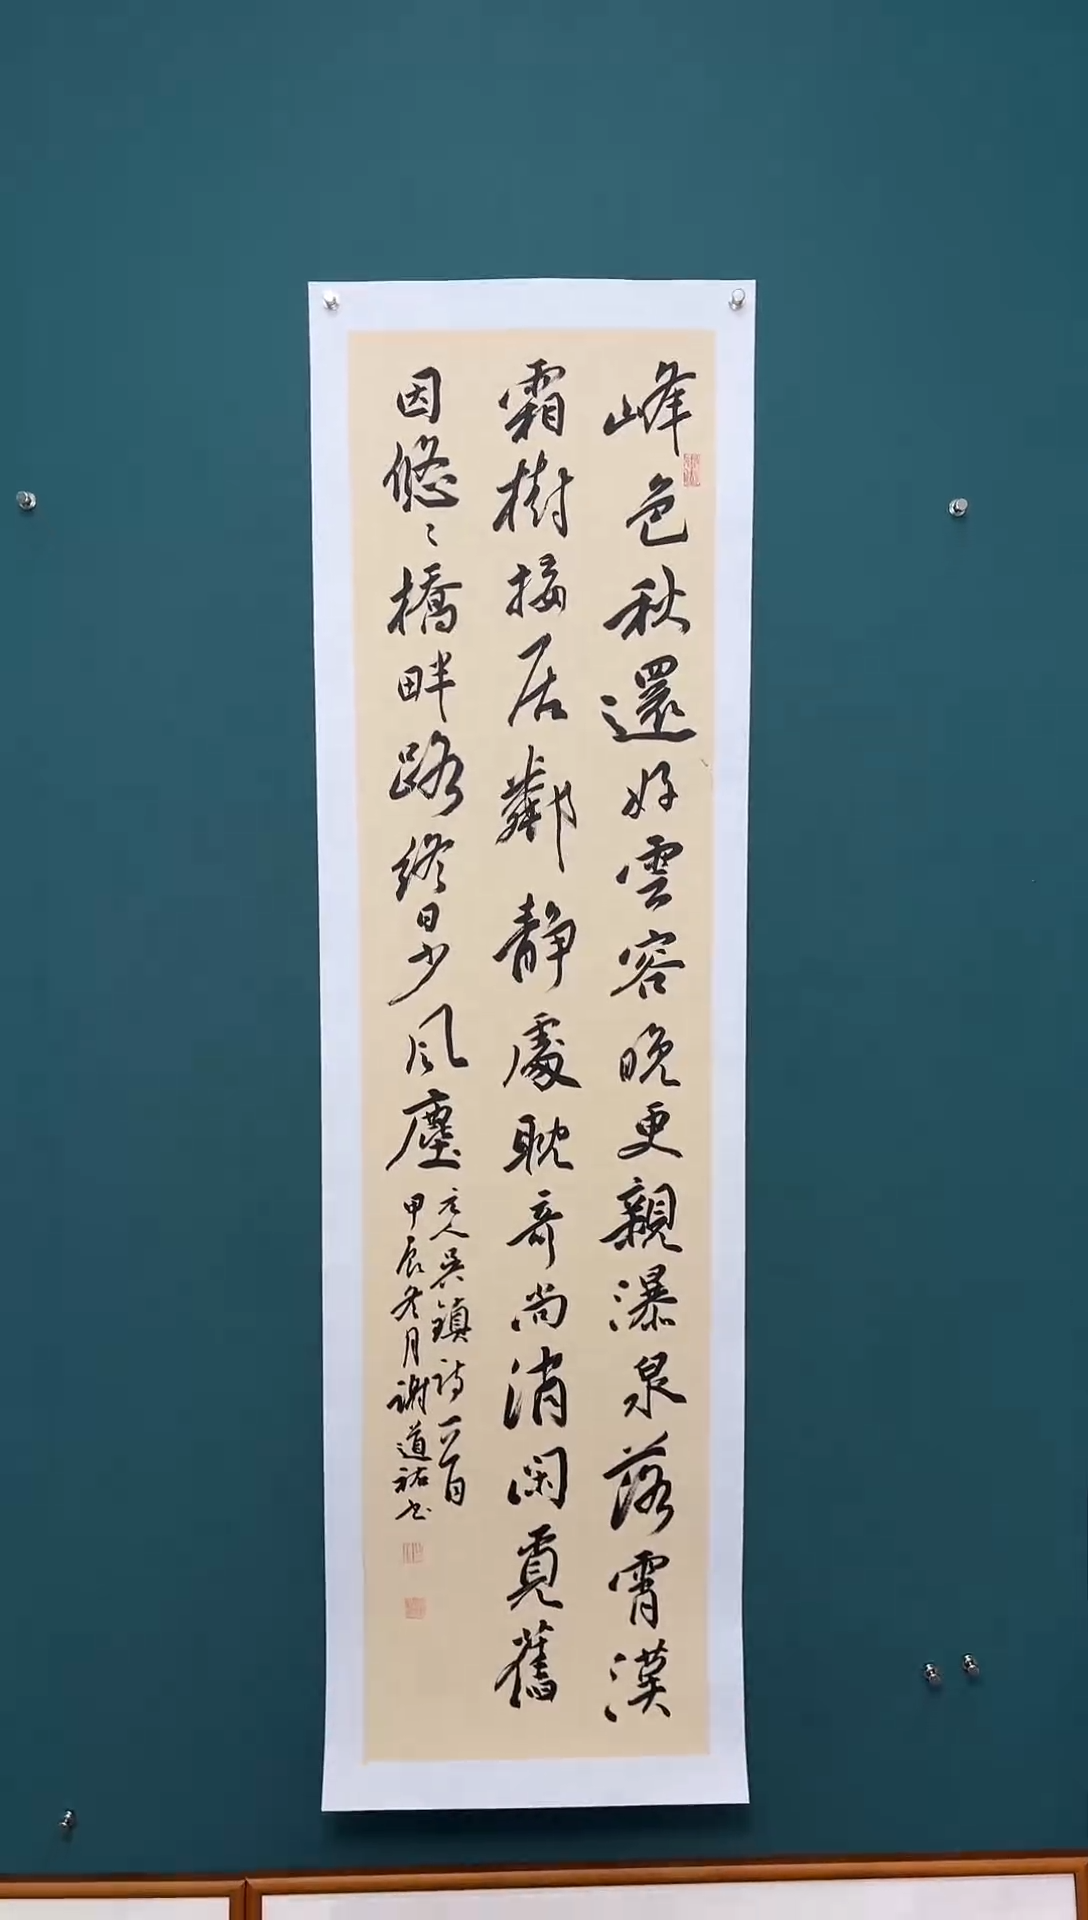 峰色秋還好雲容晚更親瀑泉落霄漢
霜樹接居鄰靜處耽奇尚消閑覓舊
因悠〻橋畔路終日少風塵
元人吳鎮詩一首
甲辰冬月謝道祐书